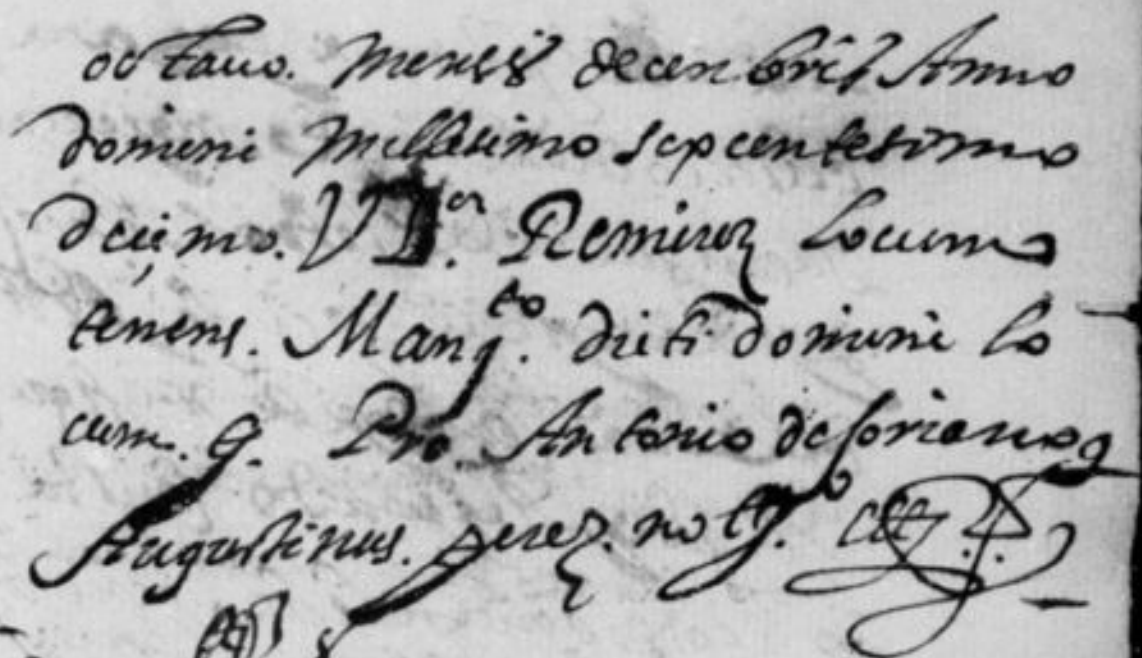 octavo. Mensis decenbris Anno
domini Millesimo sepcentesimo
decimo. VD.or Remirez Locum
tenens. Mang.to dicti domini lo
cum. g. Pro. Antonio de soriano
Augustinus. perez. not.